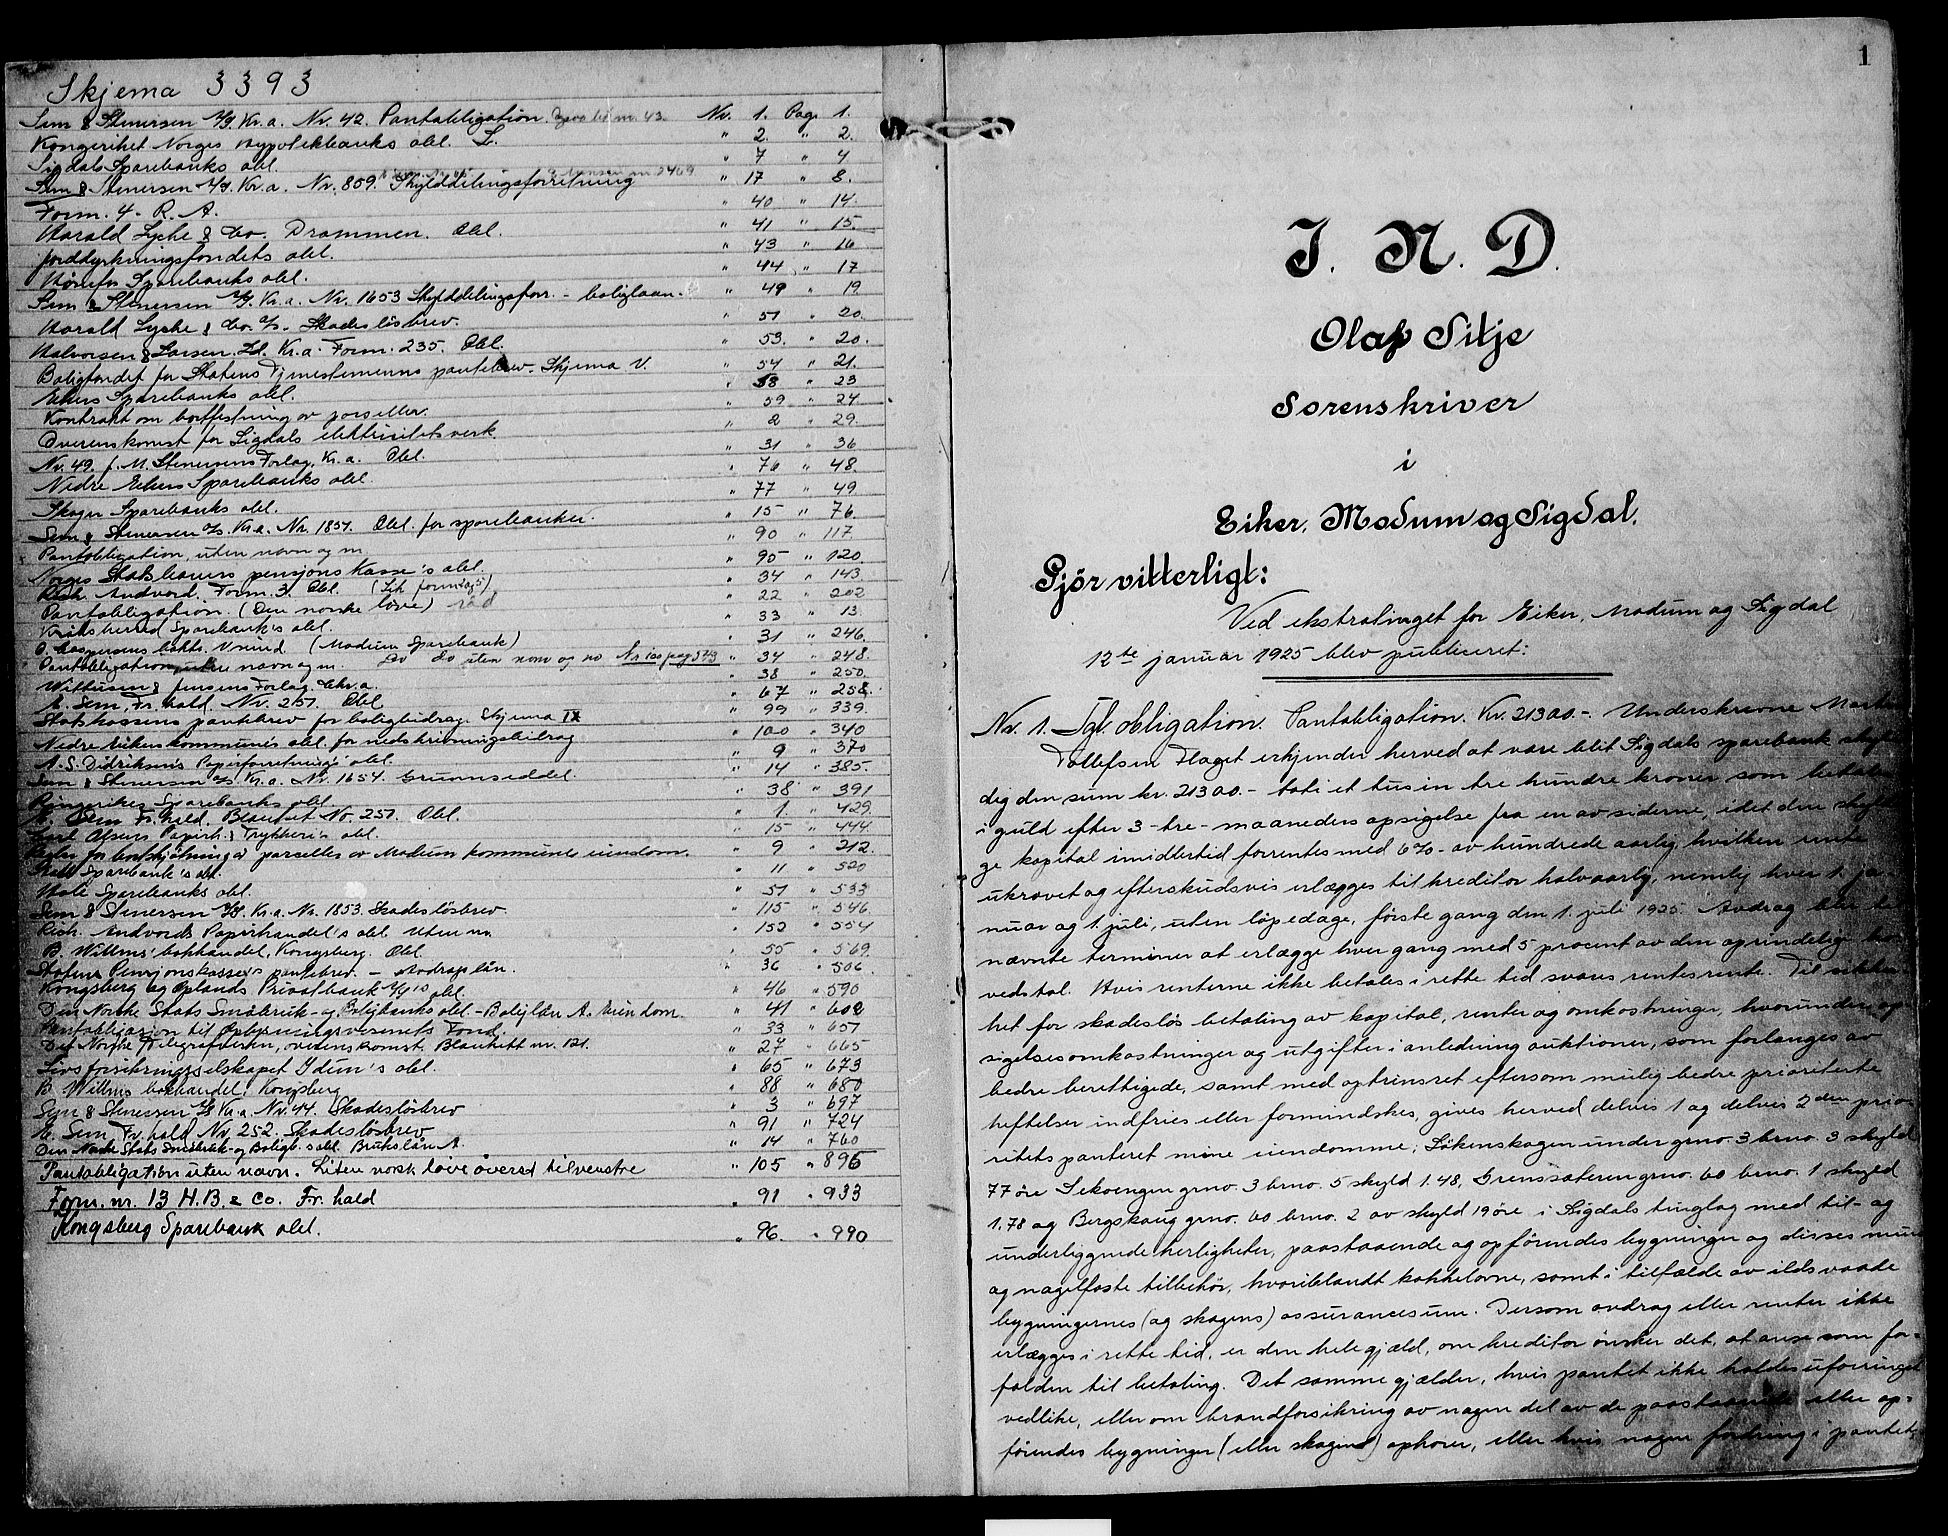 Skjema 3393
Sem & Stenersen A/S. Kr.a. Nr. 42. Pantobligation. Nr. 1. Pag. 1.
Kongeriket Norges Hypotekbanks obl. L. " 2. " 2.
Sigdals Sparebanks obl. " 7 " 4
Sem & Stenersen A/S. Kr.a. Nr. 809. Skylddelingsforretning " 17 " 8.
Form. 4. R. A. " 40 " 14.
Harald Lyche & Co. Drammen. Obl. " 41 " 15.
Jorddyrkningsfondets obl. " 43 " 16
Hönefos Sparebanks obl. " 44 " 17
Sem & Stenersen A/S. Kr.a. Nr. 1653 Skylddelingsforr. - boliglaan. " 49 " 19.
Harald Lyche & Co. A/S. Skadeslösbrev. " 51 " 20.
Halvorsen & Larsen. Ld. Kr.a. Form. 235. Obl. " 53. " 20.
Boligfondet for Statens Tjenestemenns pantebrev. Skjema V. " 54 " 21.
Ekers Sparebanks obl. " 58 " 23
Kontrakt om bortfestning av parseller. " 59 " 24.
Overenskomst for Sigdals elektrisitetsverk. " 2 " 29.
Nr. 49. J. M. Stenersens Forlag, Kr.a. Obl. " 31 " 36
Nedre Ekers Sparebanks obl. " 76 " 48.
Skoger Sparebanks obl. " 77 " 49
Sem & Stenersen A/S. Kr.a. Nr. 1851. Obl. for sparebanker. " 15 " 76.
Pantobligation, uten navn og nr. " 90 " 117.
Norges Statsbaners pensjons Kasse's obl. " 95 " 120
Rich. Andvord. Form. 3. Obl. " 34 " 143
Pantobligation. (Den norske löve) " 22 " 202
Krödsherred Sparebank's obl. " 33 " 13
(Modum Sparebank) " 31 " 246.
Pantobligation uten navn og nr. do do uten navn og no Nr 100 pag 573 " 34 " 248.
Withusen & Jensens Forlag. Chr.a. " 38 " 250.
E. Sem, Fr.hald. Nr. 251. Obl " 67 " 258.
Statskassens pantebrev for boligbidrag. Skjema IX " 99 " 339.
Nedre Ekers kommunes obl. for nedskrivningsbidrag " 100 " 340
A. S. Didriksens Papirforretnings obl. " 9 " 370
Sem & Stenersen A/S Kr.a. Nr. 1654. Grunnseddel. " 14 " 385.
Ringerikes Sparebanks obl. " 38 " 391
E. Sem Fr.hald. Blankett No. 251. Obl. " 1. " 429
Papirh. & Trykkeri's obl. " 15 " 444
Regler for bortskjötning av parseller av Modum kommunes eiendom. " 9 " 212.
Sparebank's obl. " 11 " 520
Hole Sparebanks obl. " 51 " 533
Sem & Stenersen A/S. Kr.a. Nr. 1853. Skadeslösbrev " 115 " 546
Rich. Andvords Papirhandel's obl. uten nr. " 152 " 554
B. Willms' bokhandel, Kongsberg. Obl. " 55 " 569.
Statens Pensjonskasse's pantebrev. - Avdragslån. " 36 " 506.
Kongsberg og Oplands Privatbank A/S's obl. " 46 " 590
Den Norske Stats Småbruk- og Boligbanks obl. - Boliglån A. Eiendom. " 41 " 602
Pantobligasjon til Opbyrningsvesenets Fond. " 33 " 651
Det Norske Telegrafverken, overenskomst. Blankett nr. 131. " 27 " 665
Livsforsikringsselskapet Ydun's obl. " 65 " 673
B. Willms bokhandel, Kongsberg " 88 " 680
Sem & Stenersen A/S Kr.a. Nr. 44. Skadeslösbrev " 3 " 697
E. Sem Fr.hald Nr 252. Skadeslösbrev " 91 " 724
Den Norske Stats Småbruk- og Boligb.s obl. Brukslån A. " 14 " 760
Pantobligation uten navn. Liten norsk löve överst tilvenstre " 105 " 896
Form. nr. 13 H. B & Co. Fr. hald " 91 " 933
Kongsberg Sparebank obl. " 96. " 990
1
J. N. D.
Olaf Silje
Sorenskriver
i
Eiker, Modum og Sigdal.
Gjör vitterligt:
Ved ekstratinget for Eiker, Modum og Sigdal
12te januar 1925 blev publiceret:
Nr. 1. Tgl. obligation. Pantobligation. Kr. 21300.-. Underskrevne
Tollefsen Flaget erkjender herved at være blit Sigdals sparebank
dig den sum kr. 21300.- to ti et tusin tre hundre kroner som betales
i guld efter 3-tre- maaneders opsigelse fra en av siderne, idet den
ge kapital imidlertid forrentes med 6% av hundrede aarlig, hvilken rente
ukrævet og efterskudsvis erlægges til kreditor halvaarlig, nemlig hver 1. ja-
nuar og 1 juli, uten löpedage, förste gang den 1. juli 1925. Avdrag blir
nævnte terminer at erlægge hver gang med 5 procent av den oprindelige
vedstol. Hvis renterne ikke betales i rette tid svares rentesrente. Til sikker-
het for skadeslös betaling av kapital, renter og omkostninger, hvorunder op-
sigelsesomkostninger og utgifter i anledning auktioner, som forlanges av
bedre berettigede, samt med optrinsret eftersom mulig bedre prioriterte
heftelser indfries eller formindskes, gives herved delvis 1 og delvis 2den prio-
ritets panteret i mine eiendomme; Lökenskogen under grno. 3 brno. 3 skyld
77 öre Sekoengen grno. 3 brno. 5 skyld 1.48, Grenssæteren grno. 60 brno. 1 skyld
1.78 og Bergskaug grno. 60 brno. 2 av skyld 19 öre i Sigdals tinglag med til- og
underliggende herligheter, paastaaende og opförendes bygninger og disses mur
og nagelfaste tilbehör, hvoriblandt kakkelovne, samt i tilfælde av ildsvaade
bygningernes (og skogens) assurancesum. Dersom avdrag eller renter ikke
erlægges i rette tid, er den hele gjæld, om kreditor önsker det, at anse som for-
falden til betaling. Det samme gjælder, hvis pantet ikke holdes uforringet
vedlike, eller om brandforsikring av nogen del av de paastaaende eller op-
förendes bygninger (eller skogen) ophörer, eller hvis nogen fordring i pantet